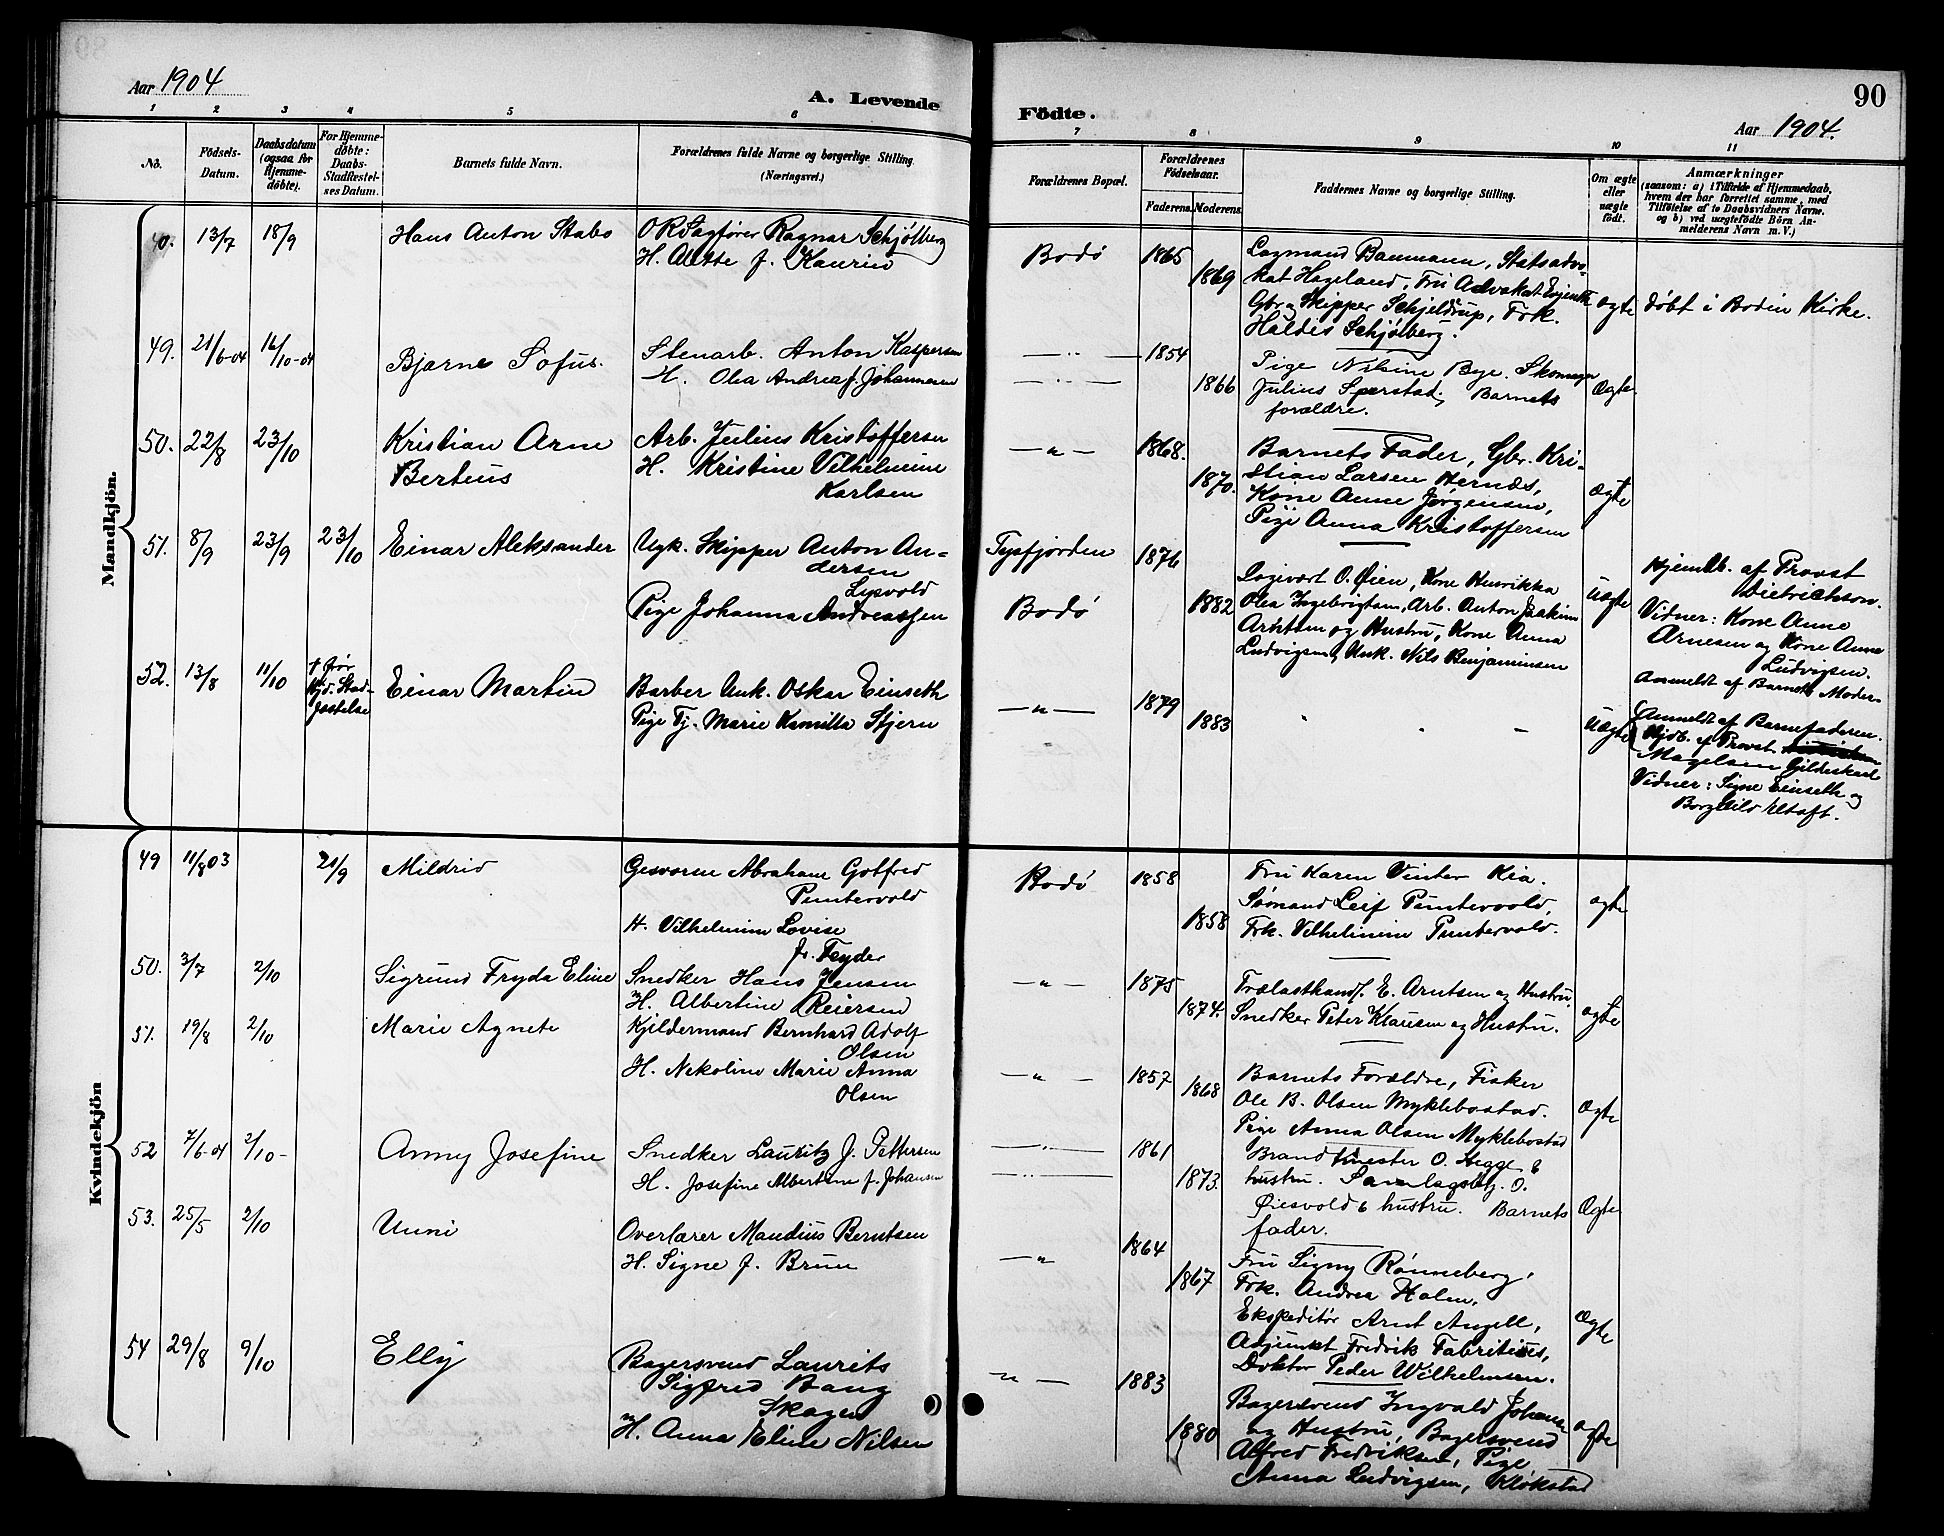 Aar 1904
A. Levende
Födte.
Aar 1904.
90
1 2 3 4 5 6 7 8 9 10 11
No.
Födsels-Datum.
Daabsdatum (ogsaa for Hjemme-döbte).
For Hjemme-döbte: Daabs-Stadfæstel-ses Datum.
Barnets fulde Navn.
Forældrenes fulde Navne og borgerlige Stilling.
(Næringsvei.)
Forældrenes Bopæl.
Forældrenes Födselsaar.
Faderens. Moderens.
Faddernes Navne og borgerlige Stilling.
Om ægte eller uægte födt.
Anmærkninger
(saasom: a) i Tilfælde af Hjemmedaab,
hvem der har forrettet samme, med
Tilföielse af to Daabsvidners Navne,
og b) ved uægtefödte Börn An-
melderens Navn m. V.)
Mandkjön.
13/7 18/9 Hans Anton Stabo
ORSagfører Ragnar Schjølberg
H. Aette f. Kaurin
Bodø 1865 1869
Lagmand Baumann, Statsadvo-
kat Hageland, Fru Advokat Evjenth
Gbr og Skipper Schjeldrup, Frk.
Haldis Schjølberg.
ægte
døbt i Bodin Kirke.
49. 21/6-04 16/10-04 Bjarne Sofus.
Stenarb. Anton Kaspersen
H. Olea Andrea f. Johannesen
— " — 1854 1866
Pige Nilsine Bye. Skomager
Julius Sperstad, Barnets
forældre.
Ægte
50. 22/8 23/10 Kristian Arne
Berteus
Arb. Julius Kristoffersen
H. Kristine Vilhelmine
Karlsen
— " — 1868. 1870.
Barnets Fader, Gbr. Kri-
stian Larsen Hernæs,
Kone Anne Jørgensen,
Pige Anna Kristoffersen
ægte
51. 8/9 23/9 23/10 Einar Aleksander
Ugk. Skipper Anton An-
dersen
Lysvold
Pige Johanna Andreassen
Tysfjorden 1876
Bodø 1882
Logivært O. Øien, Kone Henrikka
Olea Ingebrigtsen, Arb. Anton Joakim
Arntsen og Hustru, Kone Anna
Ludvigsen, Unk. Nils Benjaminsen
uægte
Hjemdb. af Provst
Dietrichson.
Vidner: Kone Anne
Arnesen og Kone Anna
Ludvigsen.
Anmeldt af Barnets Moder
52. 13/8 11/10 † før
Hjd. Stad-
fæstelse
Einar Martin
Barber Unk. Oskar Einseth
Pige Tj. Marie Kamilla Stjern
— " — 1879 1883
Uægte
Anmeldt af Barnefaderen.
Hjdb. af Provst
Magelsen Gildeskaal
Vidner: Signe Einseth og
Borghild Altoft.
Kvindekjön
49 11/8 03 21/9 Mildrid
Gesvoren Abraham Gotfred
Puntervold
H. Vilhelmine Lovise
f. Feyder
Bodø 1858 1858
Fru Karen Vinter Kia.
Sømand Leif Puntervold,
Frk. Vilhelmine Puntervold.
ægte
50. 3/7 2/10 Sigrund Fryda Eline
Snedker Hans Jensen
H. Albertine Reiersen
— " — 1875 1874.
Trælasthandl. E. Arntsen og Hustru,
Snedker Peter Klausen og Hustru.
ægte
51. 19/8 2/10 Marie Agnete
Kjeldermand Bernhard Adolf
Olsen
H. Nekoline Marie Anna
Olsen
— " — 1857 1868
Barnets Forældre, Fisker
Ole B. Olsen Myklebostad.
Pige Anna Olsen Myklebostad
Ægte
52 7/6-04 2/10- Anny Josefine
Snedker Lauritz J. Pettersen
H. Josefine Albertine f. Johansen
— " — 1861 1873
Brandmester O. Hegge &
hustru. Samlagsbtj. O.
Øiesvold & hustru. Barnets
fader.
Ægte
53. 25/5 2/10 Unni
Overlærer Maudius Berntsen
H. Signe f. Bruun
— " — 1864 1867
Fru Signy Rønneberg,
Frk. Andrea Holm,
Ekspeditør Arnt Angell,
Adjunkt Fredrik Fabritius,
Doktor Peder Wilhelmsen.
Ægte
54 29/8 9/10 Elly
Bagersvend Laurits
Sigfred Bang
Skagen
H. Anna Eline Nilsen
— " — 1883 1880
Bagersvend Ingvald Johansen
og Hustru, Bagersvend
Alfred Fredriksen, Pige
Anna Ludvigsen, Kløkstad
ægte